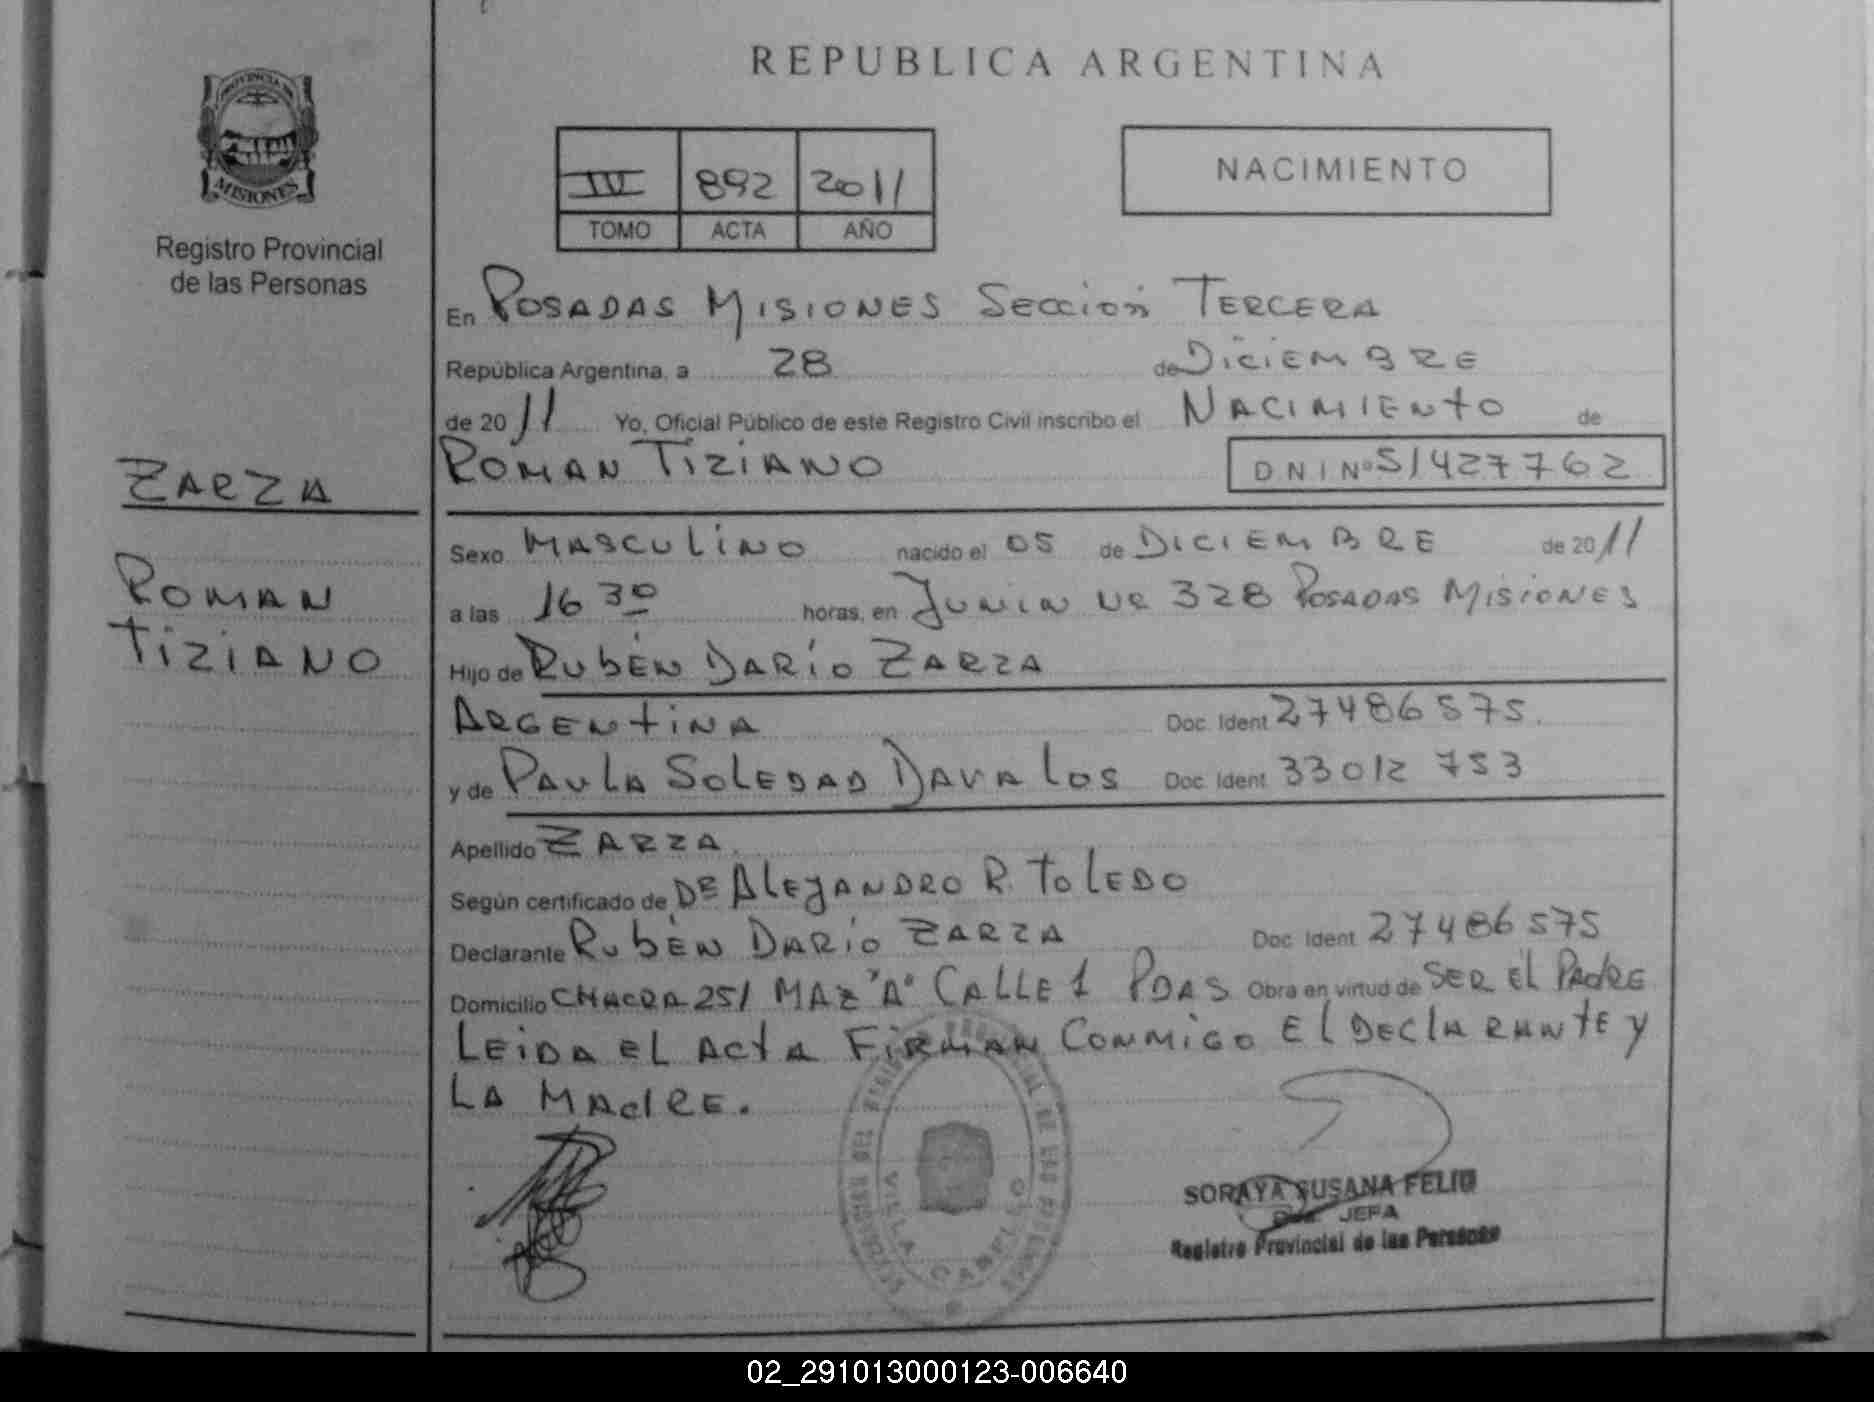 REPUBLICA ARGENTINA
PROVINCIA DE
MISIONES
Registro Provincial
de las Personas
IV 892 2011
TOMO ACTA AÑO
NACIMIENTO
En POSADAS MISIONES Sección TERCERA
República Argentina, a 28 de DiCIEMBRE
de 2011 Yo, Oficial Público de este Registro Civil inscribo el NACIMIENTO de
ROMAN TIZIANO D N I Nº 51427762
ZARZA
ROMAN
TIZIANO
Sexo MASCULINO nacido el 05 de DICIEMBRE de 2011
a las 16 30 horas, en JUNIN Nº 328 POSADAS MISIONES
Hijo de RUBÉN DARÍO ZARZA
ARGENTINA Doc. Ident 27486575.
y de PAULA SOLEDAD DAVALOS Doc. Ident 33012 753
Apellido ZARZA.
Según certificado de DE ALEJANDRO R. TOLEDO
Declarante RUBÉN DARÍO ZARZA Doc. Ident 27486575
Domicilio CHACRA 251 MAZ "A" CALLE 1 PDAS Obra en virtud de SER EL PADRE
LEIDA EL ACTA FIRMAN CONMIGO EL DECLARANTE Y
LA MADRE.
VILLA CABELLO
SORAYA SUSANA FELIU
JEFA
Registro Provincial de las Personas
02_291013000123-006640